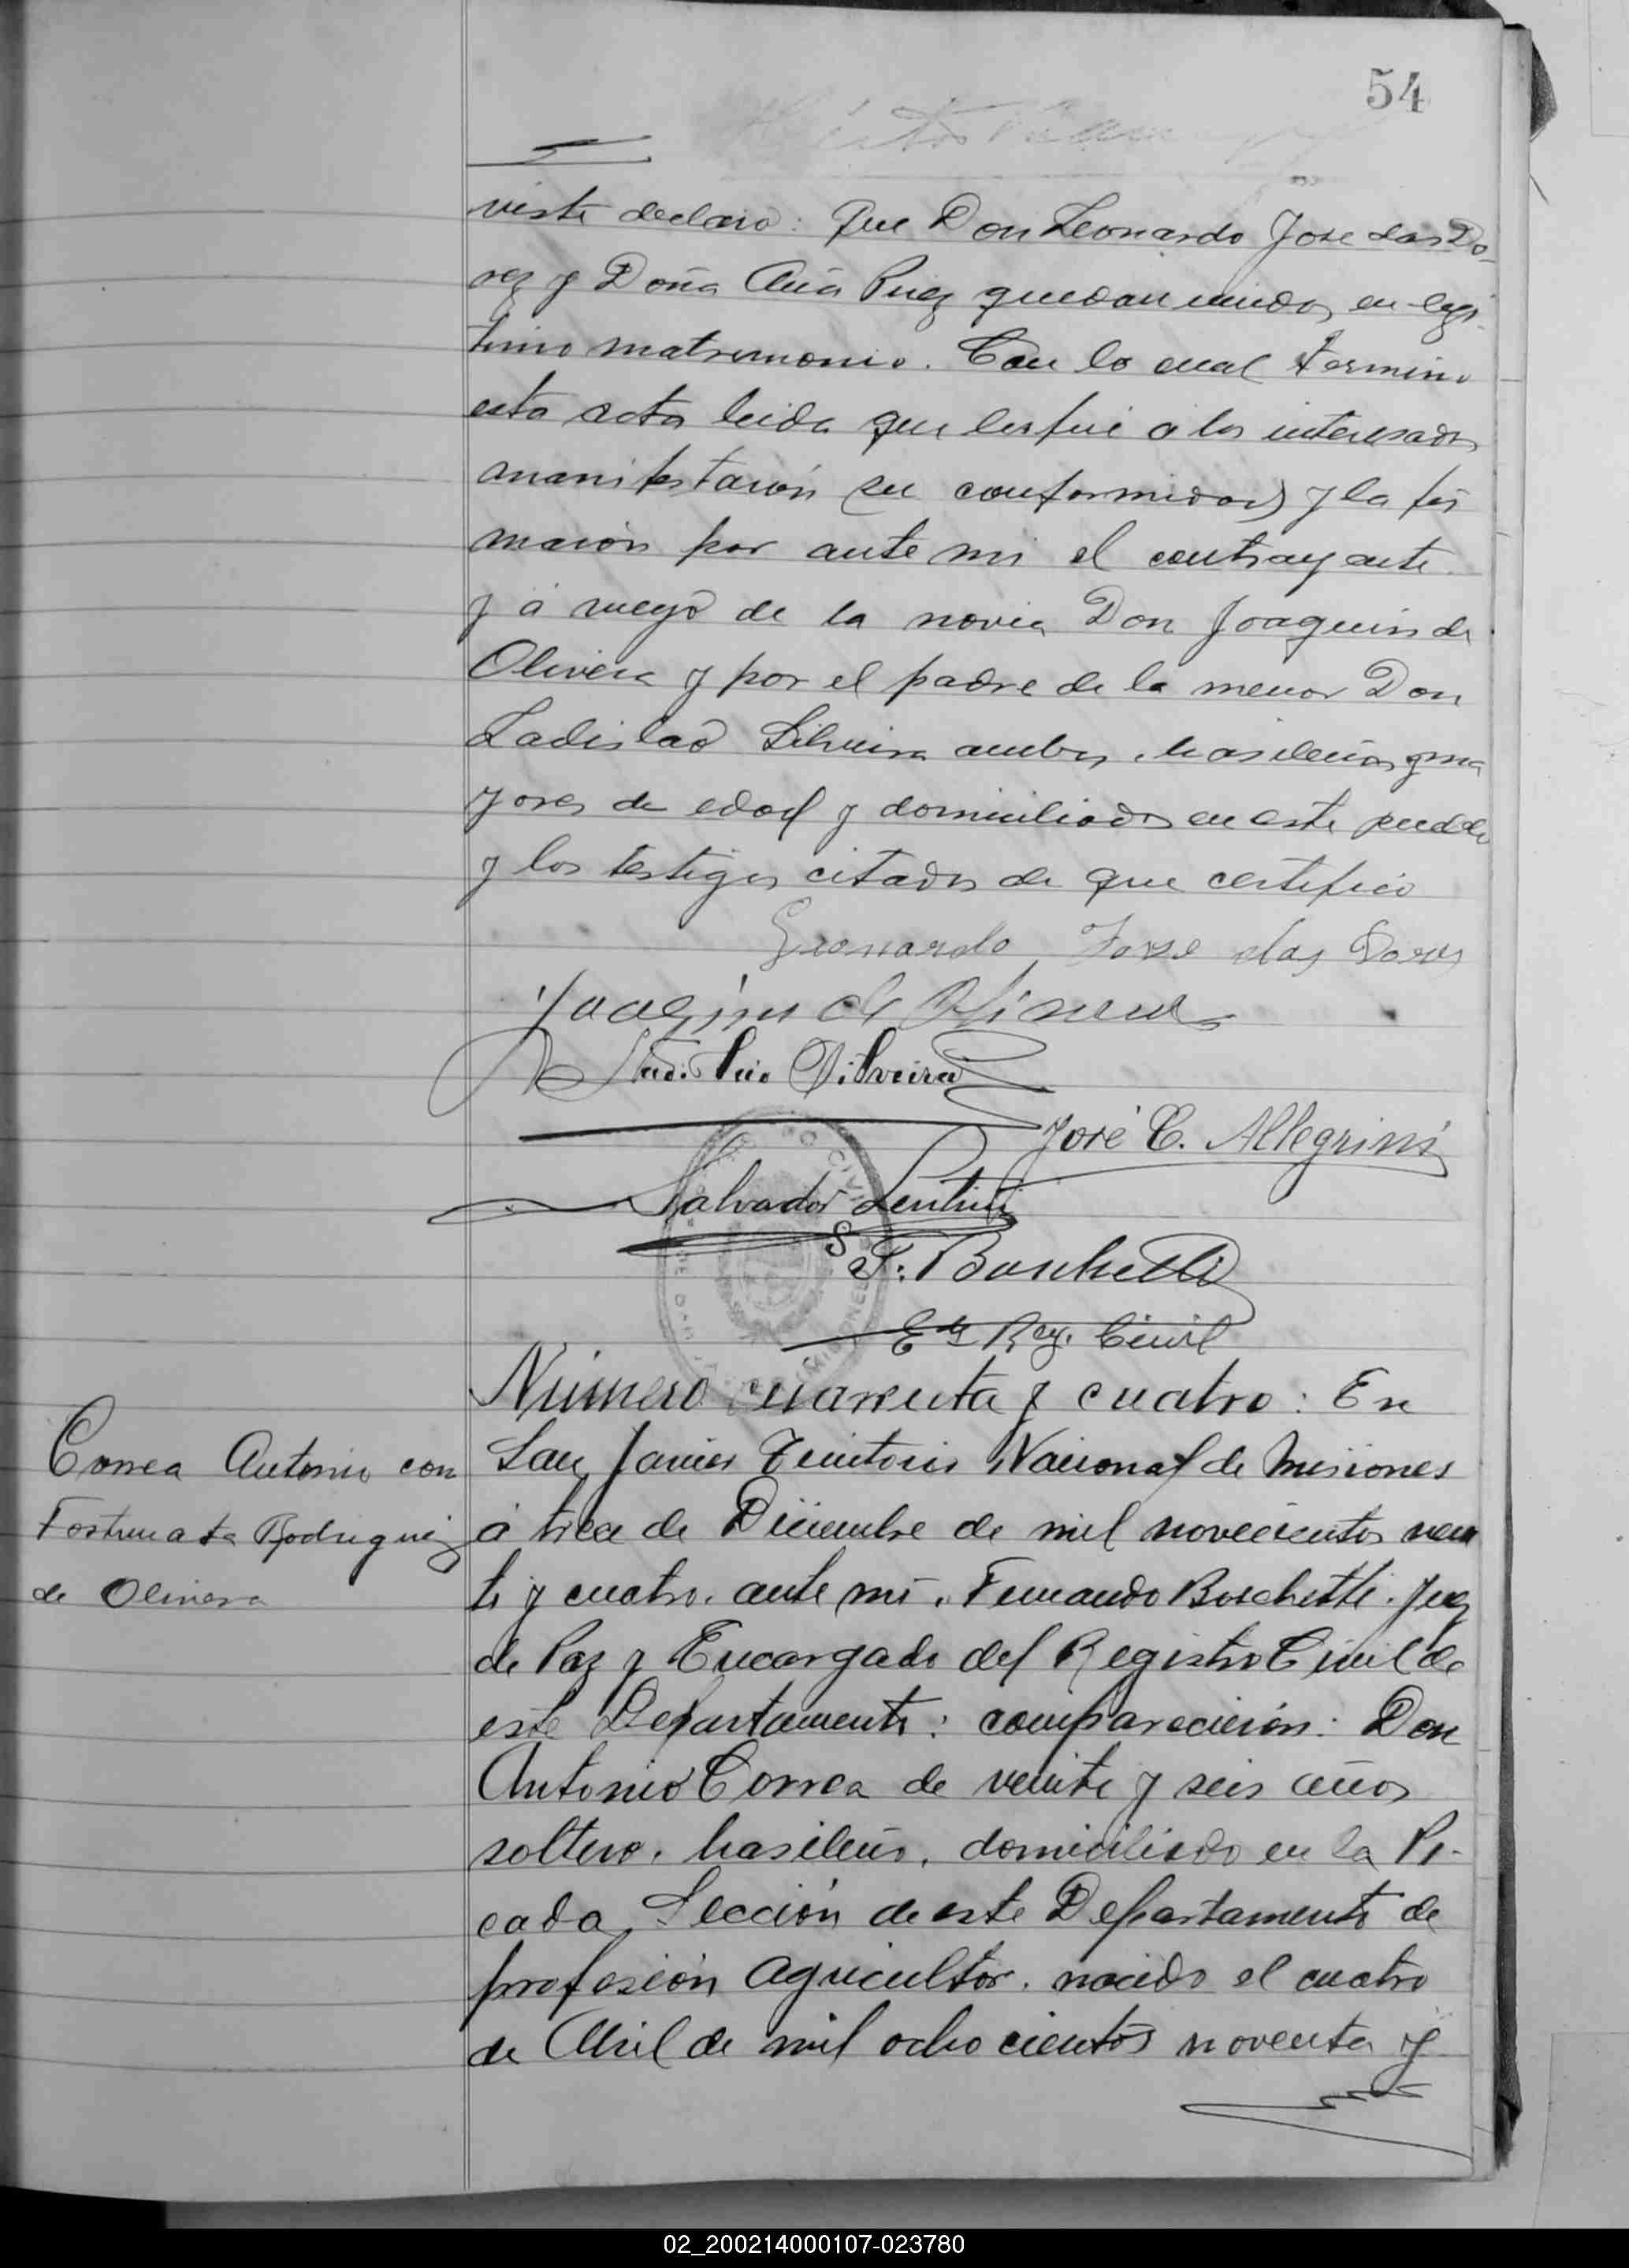 54
viste declaró: Que Don Leonardo Jose das Do-
rez y Doña Ana Puez quedan unidos en legi-
timo matrimonio. Con lo cual termino
esta acta leida que les fué a los interesados
manifestaron su conformidad y la fir
maron por ante mi el contrayente
y á ruego de la novia Don Joaquin de
Olivera y por el padre de la menor Don
Ladislao Silveira ambos brasileños y ma
yores de edad y domiciliados en este pueblo
y los testigos citados de que certifico
Leonardo Joze das Dores
Joaqin de Olivera
Silveira
José C. Allegrini
Salvador Lentini
F. Boschetti
Edo Reg. Civil
Número cuarenta y cuatro: En
Correa Antonio con
Fortunata Rodriguez
de Olivera
San Javier Territorio Nacional de Misiones
á trece de Diciembre de mil novecientos vein
te y cuatro. ante mí. Fernando Boschetti. Juez
de Paz y Encargado del Registro Civil de
este Departamento: comparecieron: Don
Antonio Correa de veinte y seis años
soltero. brasileño. domiciliado en la Pi-
cada, Sección de este Departamento de
profesión agricultor. nacido el cuatro
de Abril de mil ocho cientos noventa y
02_200214000107-023780